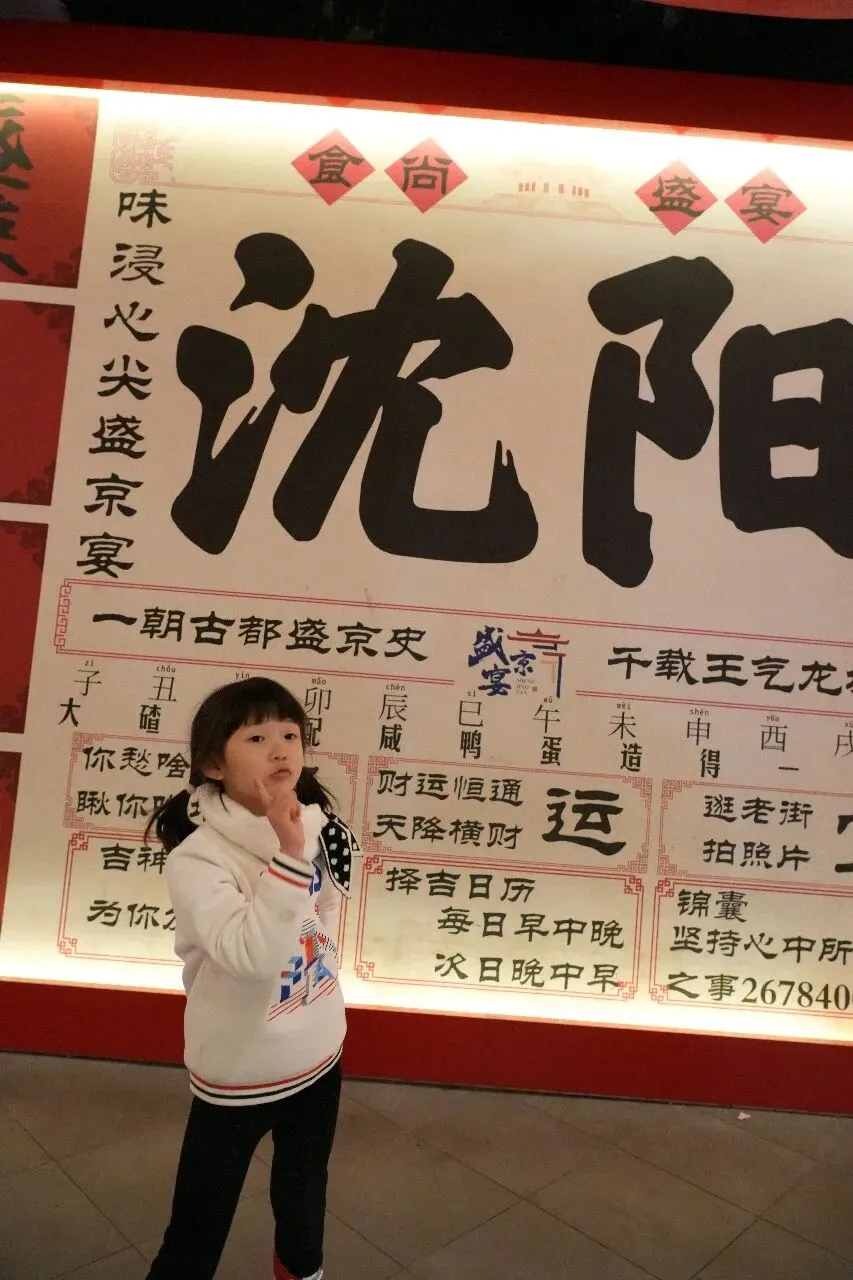 食尚 盛宴
味浸心尖盛京宴
沈阳
一朝古都盛京史
盛京宴
千载王气龙
zi chǒu yín mǎo chén sì wǔ wèi shēn yǒu
子 丑 卯 辰 巳 午 未 申 酉 戌
大 碴 配 咸 鸭 蛋 造 得 一
你愁啥
瞅你咋
财运恒通
天降横财
运
逛老街
拍照片
吉神
为你
择吉日历
每日早中晚
次日晚中早
锦囊
坚持心中所
之事267840